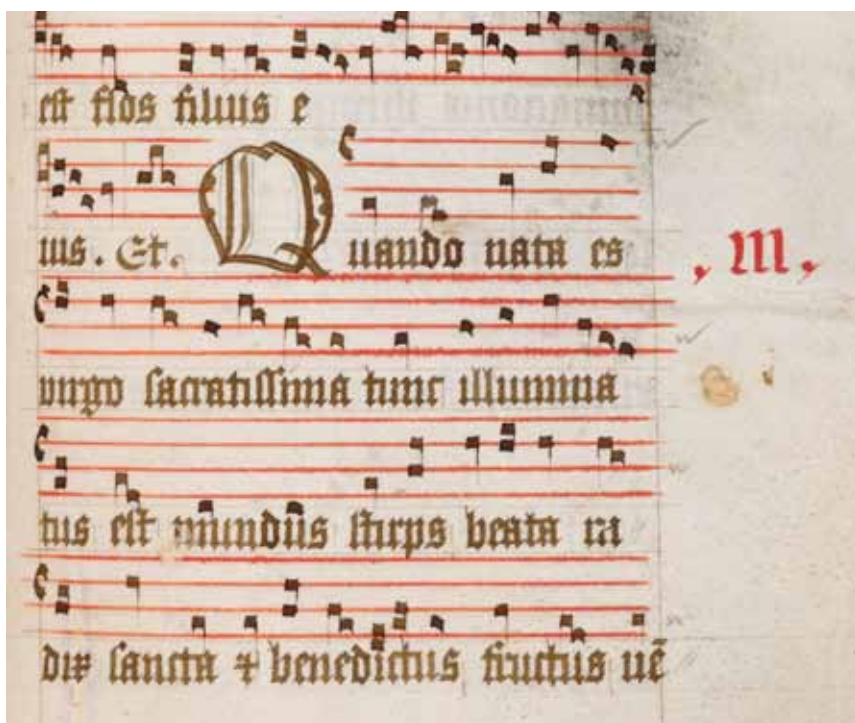 est flos filius e
ius. Et. Quando nata es
, M,
virgo sacratissima tunc illumina
tus est mundus stirps beata ra
dix sancta ⁊ benedictus fructus uē